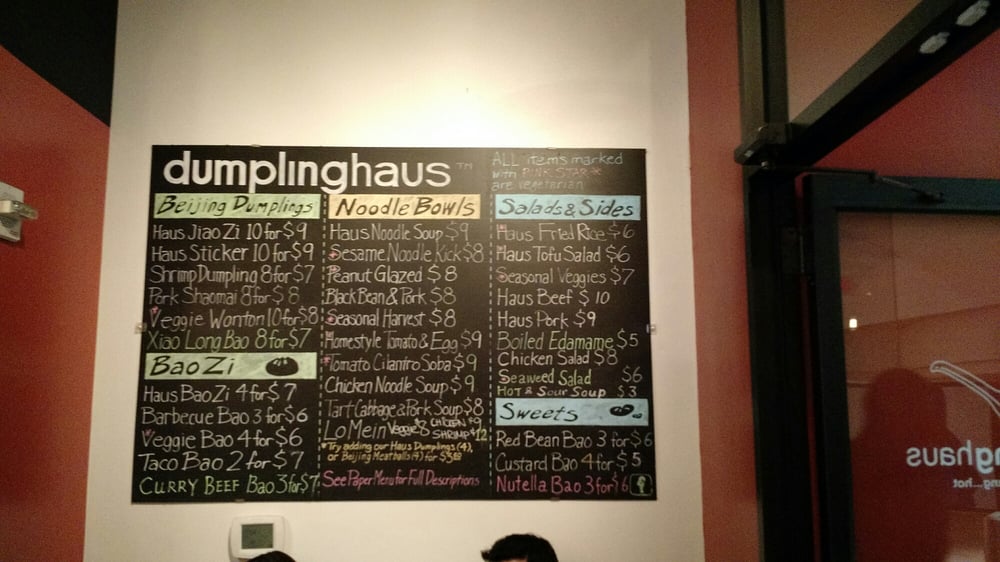 dumplinghaus™
ALL items marked
with PINK STAR *
are vegetarian
Beijing Dumplings
Haus Jiao Zi 10 for $9
Haus Sticker 10 for $9
Shrimp Dumpling 8 for $7
Pork Shaomai 8 for $8
Veggie Wonton 10 for $8
Xiao Long Bao 8 for $7
Bao Zi
Haus Bao Zi 4 for $7
Barbecue Bao 3 for $6
Veggie Bao 4 for $6
Taco Bao 2 for $7
CURRY BEEF Bao 3 for $7
Noodle Bowls
Haus Noodle Soup $9
Sesame Noodle Kick $8
Peanut Glazed $8
Black Bean & Pork $8
Seasonal Harvest $8
Homestyle Tomato & Egg $9
Tomato Cilantro Soba $9
Chicken Noodle Soup $9
Tart Cabbage & Pork Soup $8
Lo Mein Veggie $8 CHICKEN $9
SHRIMP $12
* Try adding our Haus Dumplings (4),
or Beijing Meatballs (4) for
See Paper Menu for Full Descriptions
Salads & Sides
Haus Fried Rice $6
Haus Tofu Salad $6
Seasonal Veggies $7
Haus Beef $10
Haus Pork $9
Boiled Edamame $5
Chicken Salad $8
Seaweed Salad $6
HOT & SOUR SOUP $3
Sweets
Red Bean Bao 3 for $6
Custard Bao 4 for $5
Nutella Bao 3 for $6 f
nghaus